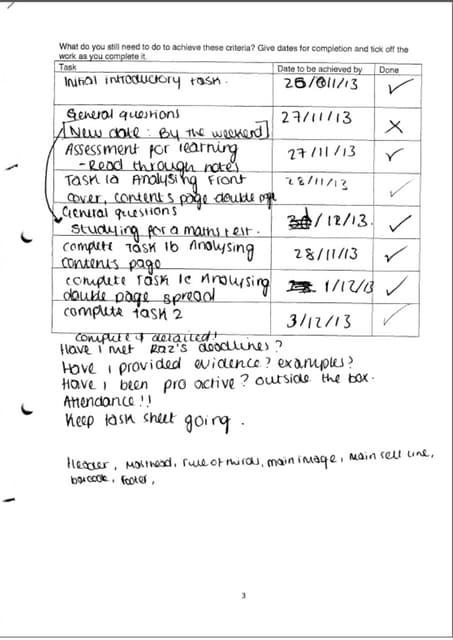 What do you still need to do to achieve these criteria? Give dates for completion and tick off the
work as you complete it.
Task Date to be achieved by Done
Initial introductory task. 25/11/13 ✓
General questions 27/11/13 ✗
[New date: By the weekend]
Assessment for learning 27/11/13 ✓
- Read through notes
Task 1a Analysing Front 28/11/13 ✓
cover, contents page double page
General questions /12/13. ✓
Studying for a maths test.
complete Task 1b Analysing 28/11/13 ✓
contents page
complete Task 1c Analysing 1/12/13 ✓
double page spread
complete task 2 3/12/13 ✓
complete & detailed!
Have I met Raz's deadlines?
Have I provided evidence? examples?
Have I been pro active? outside the box.
Attendance!!
Keep task sheet going.
Header, Masthead, rule of thirds, main image, main sell line,
barcode, footer,
3